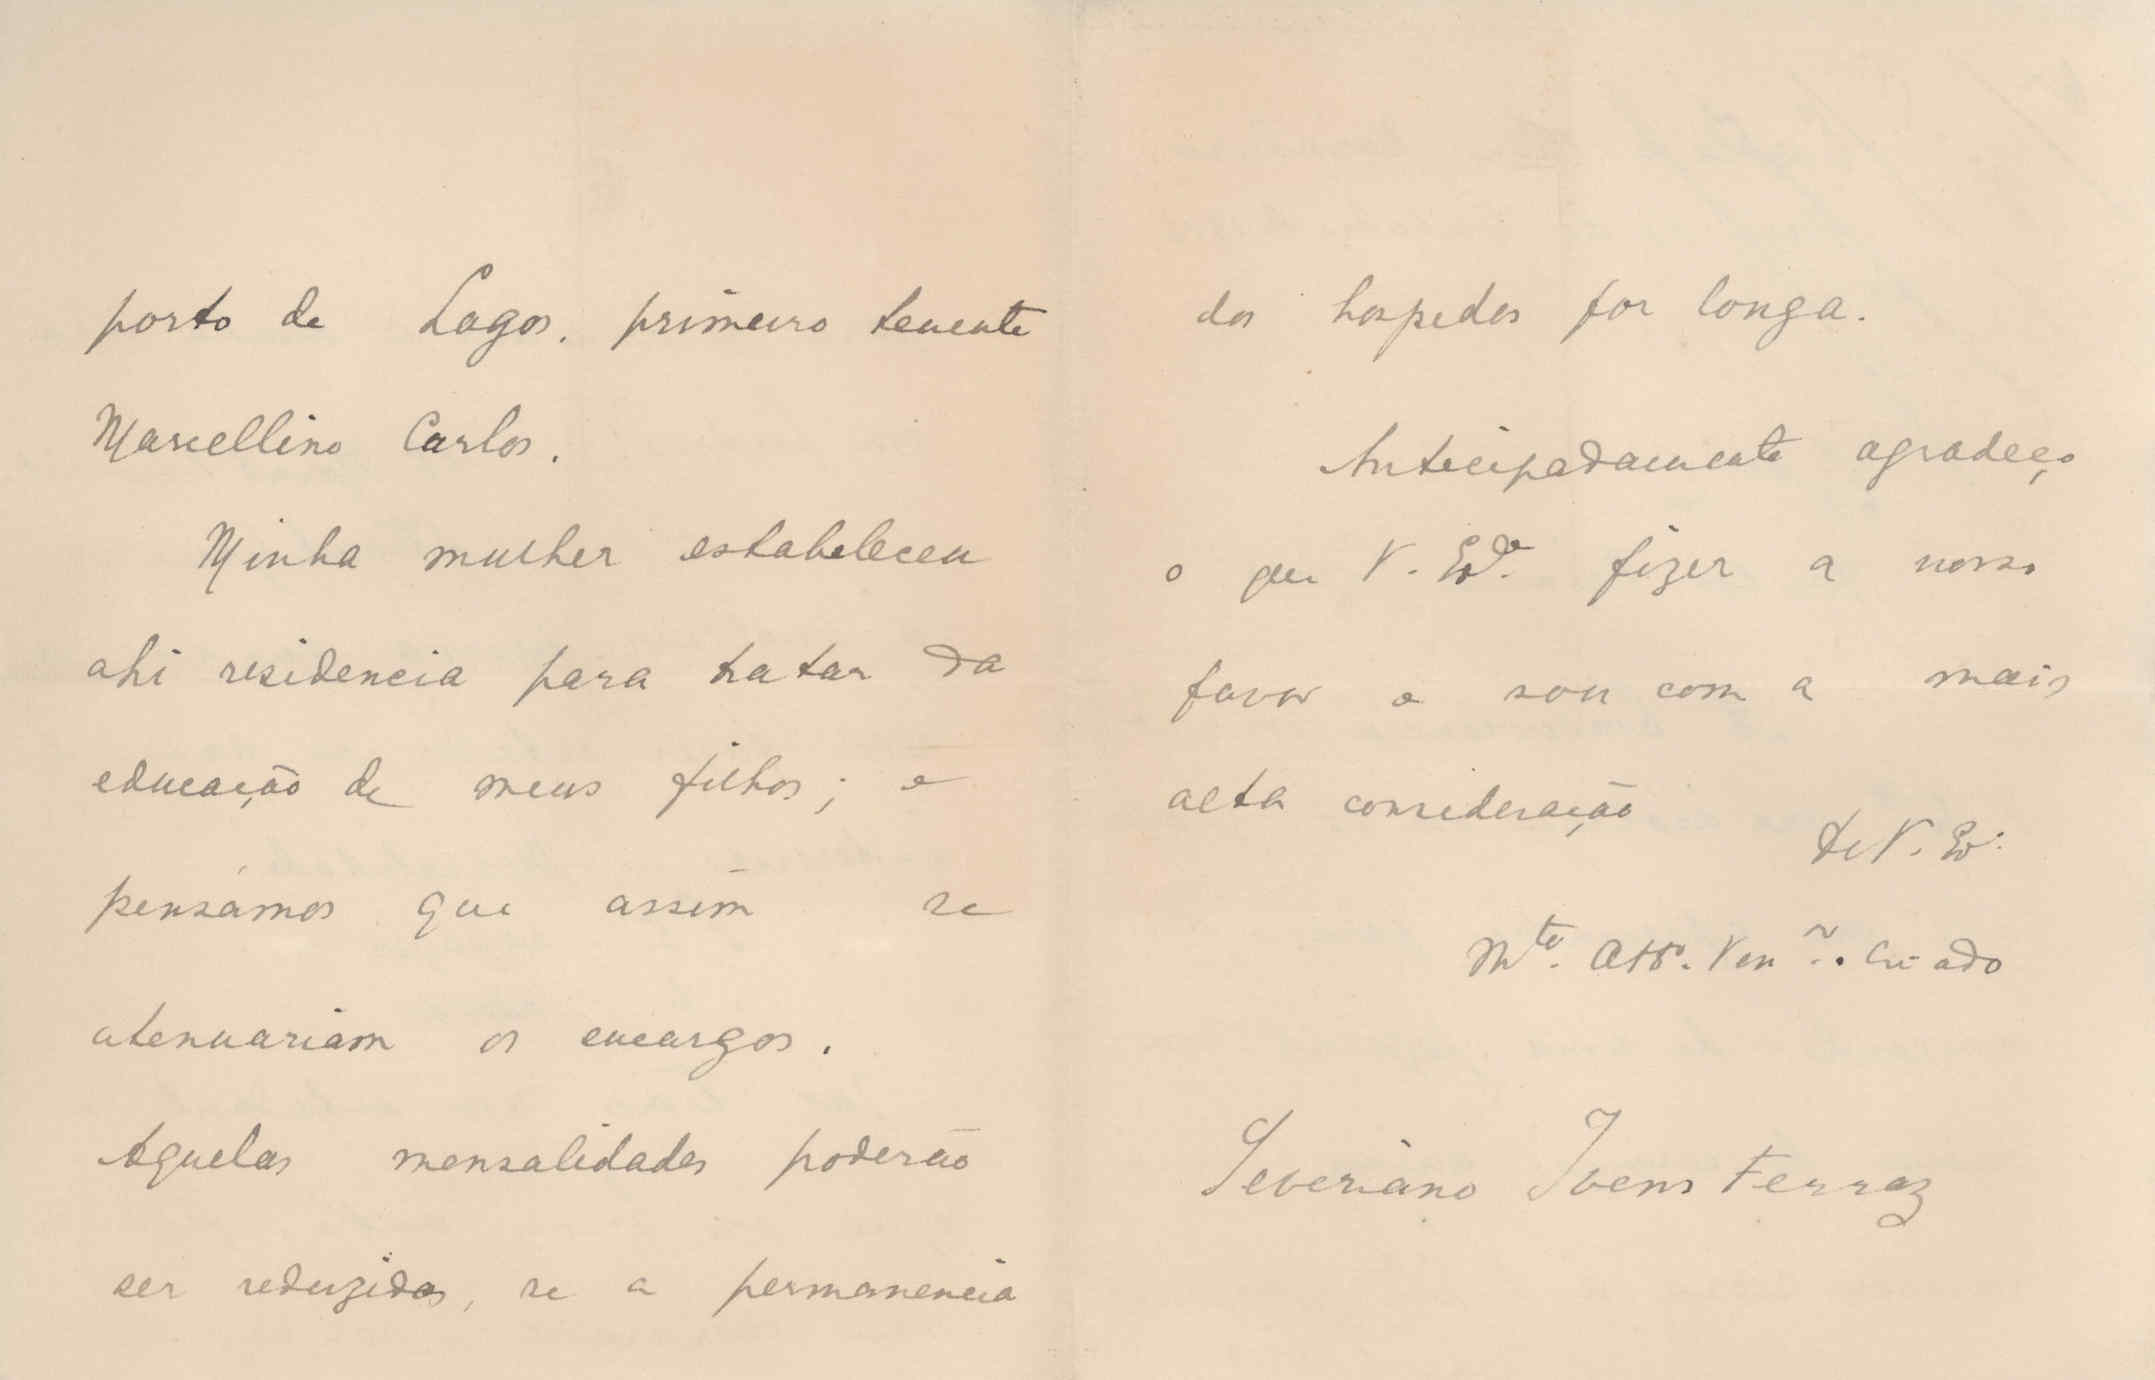 porto de Lagos, primeiro tenente
Marcellino Carlos.
Minha mulher estabeleceu
ahi residencia para tratar da
educação de meus filhos; e
pensámos que assim se
atenuariam os encargos.
Aquelas mensalidades poderão
ser reduzidas, se a permanencia
dos hospedes for longa.
Antecipadamente agradeço
o que V. Exª. fizer a nosso
favor e sou com a mais
alta consideração
de V. Exª.
Mto. Atto. Venor. Criado
Severiano Ivens Ferraz